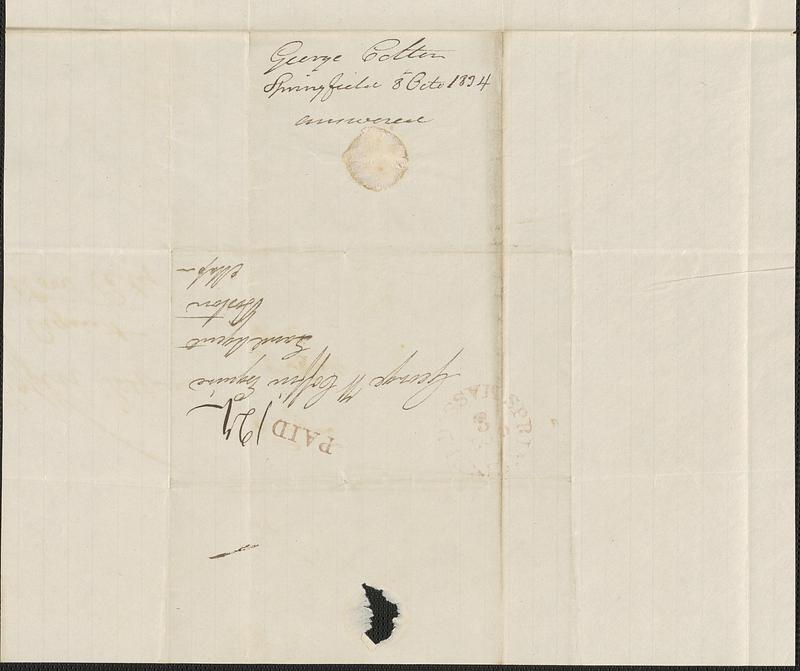 George Colton
Springfield 8 Octo 1834
answered
PAID
12½
George W Coffin Esquire
Land Agent
Boston
Mass
SPRI
MASS
8